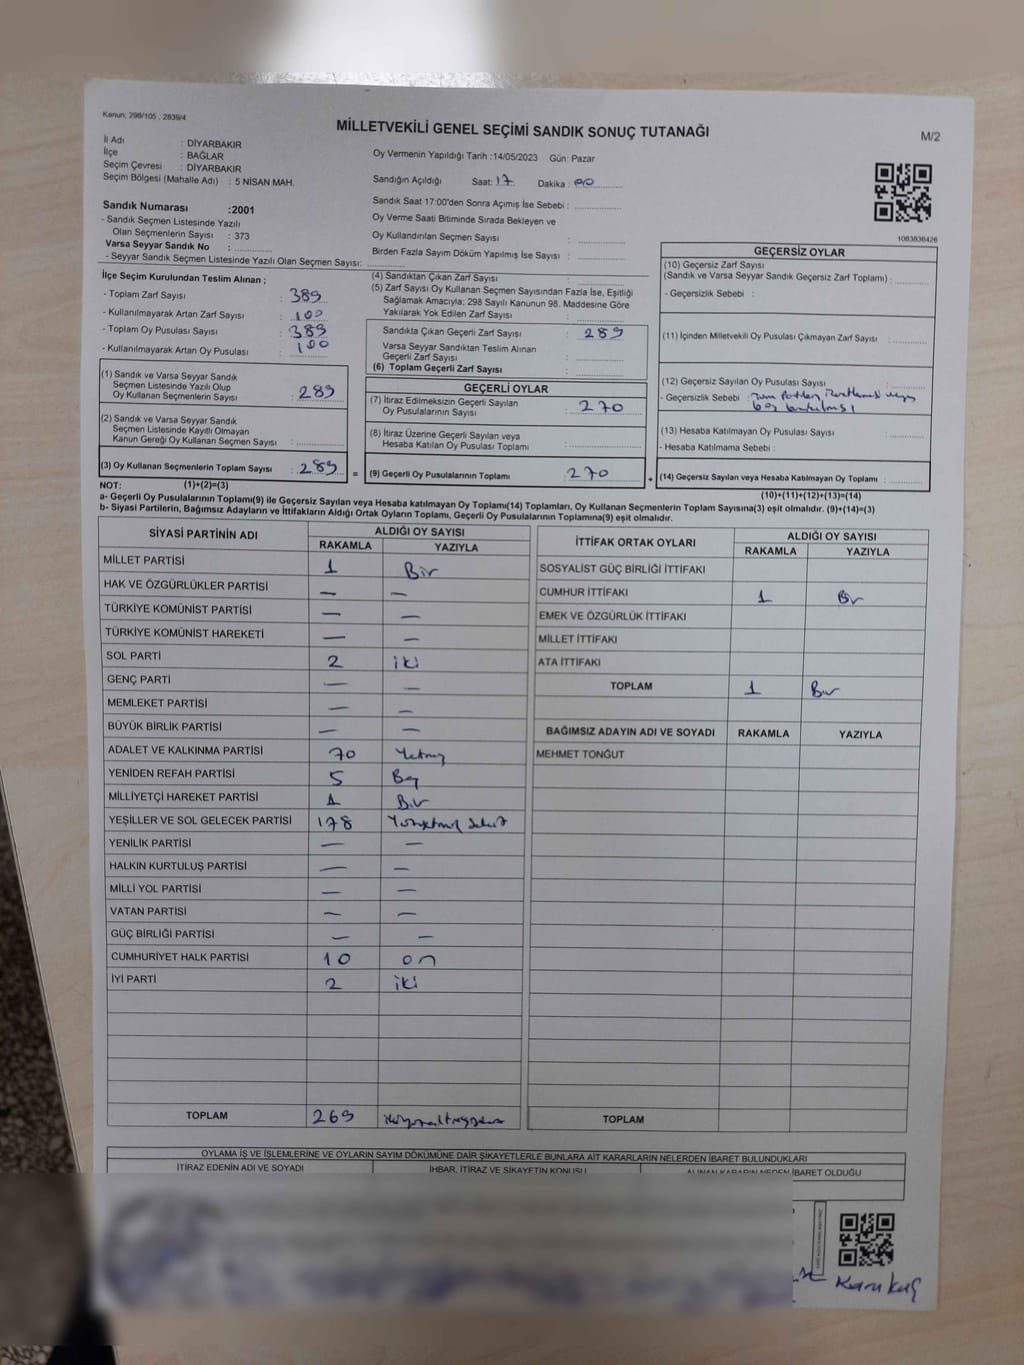 Kanun: 298/105 , 2839/4
MİLLETVEKİLİ GENEL SEÇİMİ SANDIK SONUÇ TUTANAĞI
M/2
İl Adı : DİYARBAKIR
İlçe : BAĞLAR
Seçim Çevresi : DİYARBAKIR
Seçim Bölgesi (Mahalle Adı) : 5 NİSAN MAH.
Sandık Numarası :2001
- Sandık Seçmen Listesinde Yazılı
Olan Seçmenlerin Sayısı : 373
Varsa Seyyar Sandık No :
- Seyyar Sandık Seçmen Listesinde Yazılı Olan Seçmen Sayısı:
Oy Vermenin Yapıldığı Tarih :14/05/2023 Gün: Pazar
Sandığın Açıldığı Saat: 17 Dakika : 00
Sandık Saat 17:00'den Sonra Açımış İse Sebebi :
Oy Verme Saati Bitiminde Sırada Bekleyen ve
Oy Kullandırılan Seçmen Sayısı :
Birden Fazla Sayım Döküm Yapılmış İse Sayısı :
1083836426
İlçe Seçim Kurulundan Teslim Alınan ;
- Toplam Zarf Sayısı : 389
- Kullanılmayarak Artan Zarf Sayısı : 100
- Toplam Oy Pusulası Sayısı : 389
- Kullanılmayarak Artan Oy Pusulası : 100
(1) Sandık ve Varsa Seyyar Sandık
Seçmen Listesinde Yazılı Olup
Oy Kullanan Seçmenlerin Sayısı : 289
(2) Sandık ve Varsa Seyyar Sandık
Seçmen Listesinde Kayıtlı Olmayan
Kanun Gereği Oy Kullanan Seçmen Sayısı :
(3) Oy Kullanan Seçmenlerin Toplam Sayısı : 289
(4) Sandıktan Çıkan Zarf Sayısı :
(5) Zarf Sayısı Oy Kullanan Seçmen Sayısından Fazla İse, Eşitliği
Sağlamak Amacıyla; 298 Sayılı Kanunun 98. Maddesine Göre
Yakılarak Yok Edilen Zarf Sayısı :
Sandıkta Çıkan Geçerli Zarf Sayısı : 289
Varsa Seyyar Sandıktan Teslim Alınan
Geçerli Zarf Sayısı :
(6) Toplam Geçerli Zarf Sayısı :
GEÇERLİ OYLAR
(7) İtiraz Edilmeksizin Geçerli Sayılan
Oy Pusulalarının Sayısı : 270
(8) İtiraz Üzerine Geçerli Sayılan veya
Hesaba Katılan Oy Pusulası Toplamı :
= (9) Geçerli Oy Pusulalarının Toplamı : 270
GEÇERSİZ OYLAR
(10) Geçersiz Zarf Sayısı
(Sandık ve Varsa Seyyar Sandık Geçersiz Zarf Toplamı) :
- Geçersizlik Sebebi :
(11) İçinden Milletvekili Oy Pusulası Çıkmayan Zarf Sayısı :
(12) Geçersiz Sayılan Oy Pusulası Sayısı :
- Geçersizlik Sebebi :
(13) Hesaba Katılmayan Oy Pusulası Sayısı :
- Hesaba Katılmama Sebebi :
+ (14) Geçersiz Sayılan veya Hesaba Katılmayan Oy Toplamı :
NOT: (1)+(2)=(3)
(10)+(11)+(12)+(13)=(14)
a- Geçerli Oy Pusulalarının Toplamı(9) ile Geçersiz Sayılan veya Hesaba katılmayan Oy Toplamı(14) Toplamları, Oy Kullanan Seçmenlerin Toplam Sayısına(3) eşit olmalıdır. (9)+(14)=(3)
b- Siyasi Partilerin, Bağımsız Adayların ve İttifakların Aldığı Ortak Oyların Toplamı, Geçerli Oy Pusulalarının Toplamına(9) eşit olmalıdır.
SİYASİ PARTİNİN ADI ALDIĞI OY SAYISI
RAKAMLA YAZIYLA
MİLLET PARTİSİ 1 Bir
HAK VE ÖZGÜRLÜKLER PARTİSİ — —
TÜRKİYE KOMÜNİST PARTİSİ — —
TÜRKİYE KOMÜNİST HAREKETİ — —
SOL PARTİ 2 iki
GENÇ PARTİ — —
MEMLEKET PARTİSİ — —
BÜYÜK BİRLİK PARTİSİ — —
ADALET VE KALKINMA PARTİSİ 70 Yetmiş
YENİDEN REFAH PARTİSİ 5 Beş
MİLLİYETÇİ HAREKET PARTİSİ 1 Bir
YEŞİLLER VE SOL GELECEK PARTİSİ 178
YENİLİK PARTİSİ — —
HALKIN KURTULUŞ PARTİSİ — —
MİLLİ YOL PARTİSİ — —
VATAN PARTİSİ — —
GÜÇ BİRLİĞİ PARTİSİ — —
CUMHURİYET HALK PARTİSİ 10 on
İYİ PARTİ 2 iki
TOPLAM 269
İTTİFAK ORTAK OYLARI ALDIĞI OY SAYISI
RAKAMLA YAZIYLA
SOSYALİST GÜÇ BİRLİĞİ İTTİFAKI
CUMHUR İTTİFAKI 1 Bir
EMEK VE ÖZGÜRLÜK İTTİFAKI
MİLLET İTTİFAKI
ATA İTTİFAKI
TOPLAM 1 Bir
BAĞIMSIZ ADAYIN ADI VE SOYADI RAKAMLA YAZIYLA
MEHMET TONĞUT
TOPLAM
OYLAMA İŞ VE İŞLEMLERİNE VE OYLARIN SAYIM DÖKÜMÜNE DAİR ŞİKAYETLERLE BUNLARA AİT KARARLARIN NELERDEN İBARET BULUNDUKLARI
İTİRAZ EDENİN ADI VE SOYADI İHBAR, İTİRAZ VE ŞİKAYETİN KONUSU ALINAN KARARIN NEDEN İBARET OLDUĞU
Karakuş